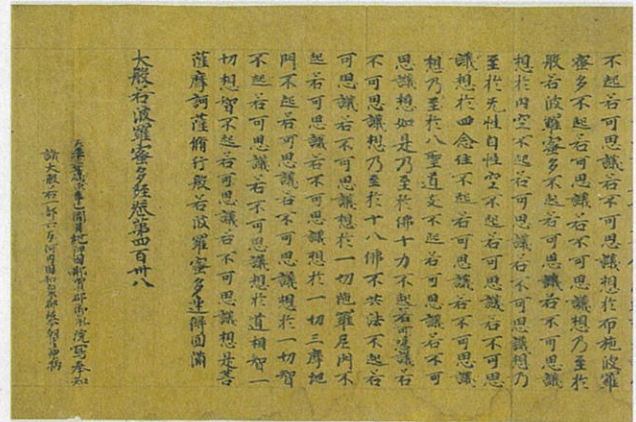 不起若可思議若不可思議想於布施波羅
蜜多不起若可思議若不可思議想乃至於
般若波羅蜜多不起若可思議若不可思議
想於内空不起若可思議若不可思議想乃
至於无性自性空不起若可思議若不可思
議想於四念住不起若可思議若不可思議
想乃至於八聖道支不起若可思議若不可
思議想如是乃至於佛十力不起若可思議若
不可思議想乃至於十八佛不共法不起若
可思議若不可思議想於一切陁羅尼門不
起若可思議若不可思議想於一切三摩地
門不起若可思議若不可思議想於一切智
不起若可思議若不可思議想於道相智一
切相智不起若可思議若不可思議想是菩
薩摩訶薩脩行般若波羅蜜多速得圓滿
大般若波羅蜜多經卷第四百卅八
郡御礼院寫奉知
識大般若一部六百河内國和泉郡